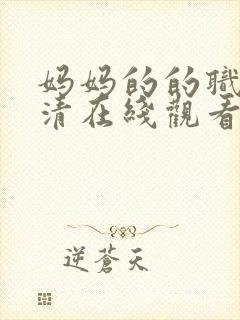 妈妈的的職
清在綫觀看
逆蒼天